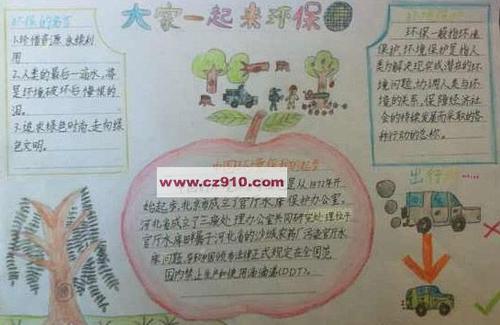 大家一起来环保
环保的名言
1.珍惜资源,永续利
用
2.人类的最后一滴水,将
是环境破坏后悔恨的
泪。
3.追求绿色时尚,走向绿
色文明。
环保一般指环境
保护,环境保护是指人
类为解决现实或潜在的环
境问题,协调人类与环
境的关系,保障经济社
会的持续发展而采取的各
种行动的总称。
中国环境保护的起步
www.cz910.com
是从1972年开
始起步,北京市成立了官厅水库保护办公室。
河北省成立了三废处理办公室共同研究处理位于
官厅水库畔属于河北省的沙城农药厂污染官厅水
库问题,导致中国颁布法律正式规定在全国范
围内禁止生产和使用滴滴涕(DDT)。
出行